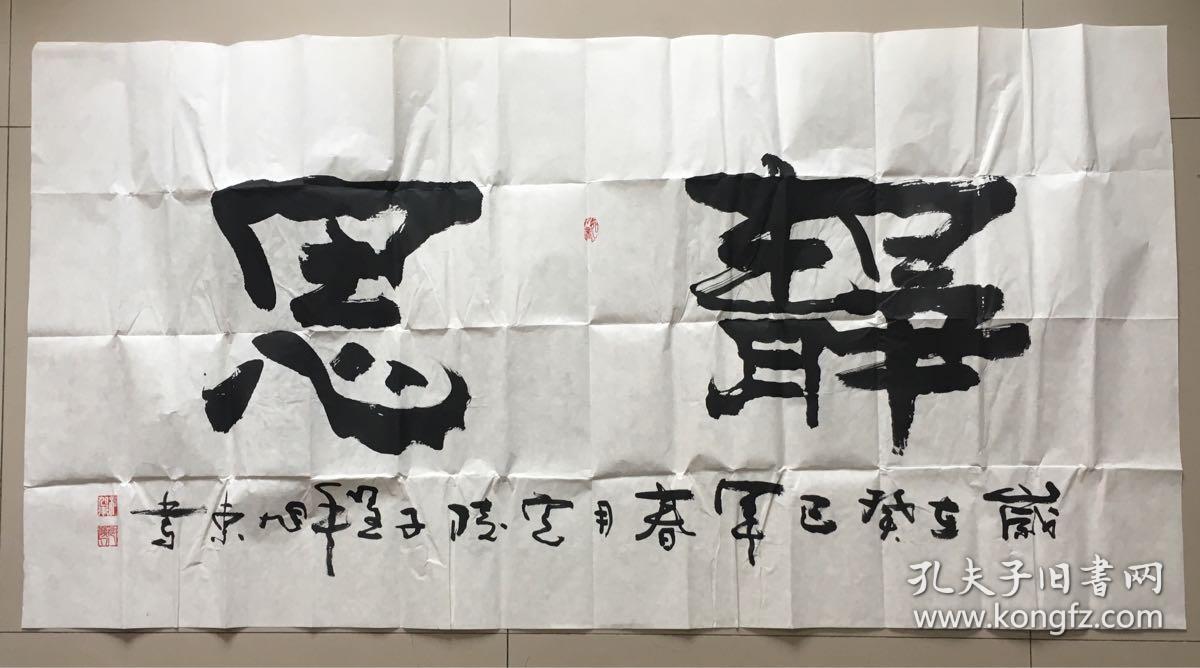 靜思
歲在癸巳年春月陵子旭東書
孔夫子旧书网
www.kongfz.com